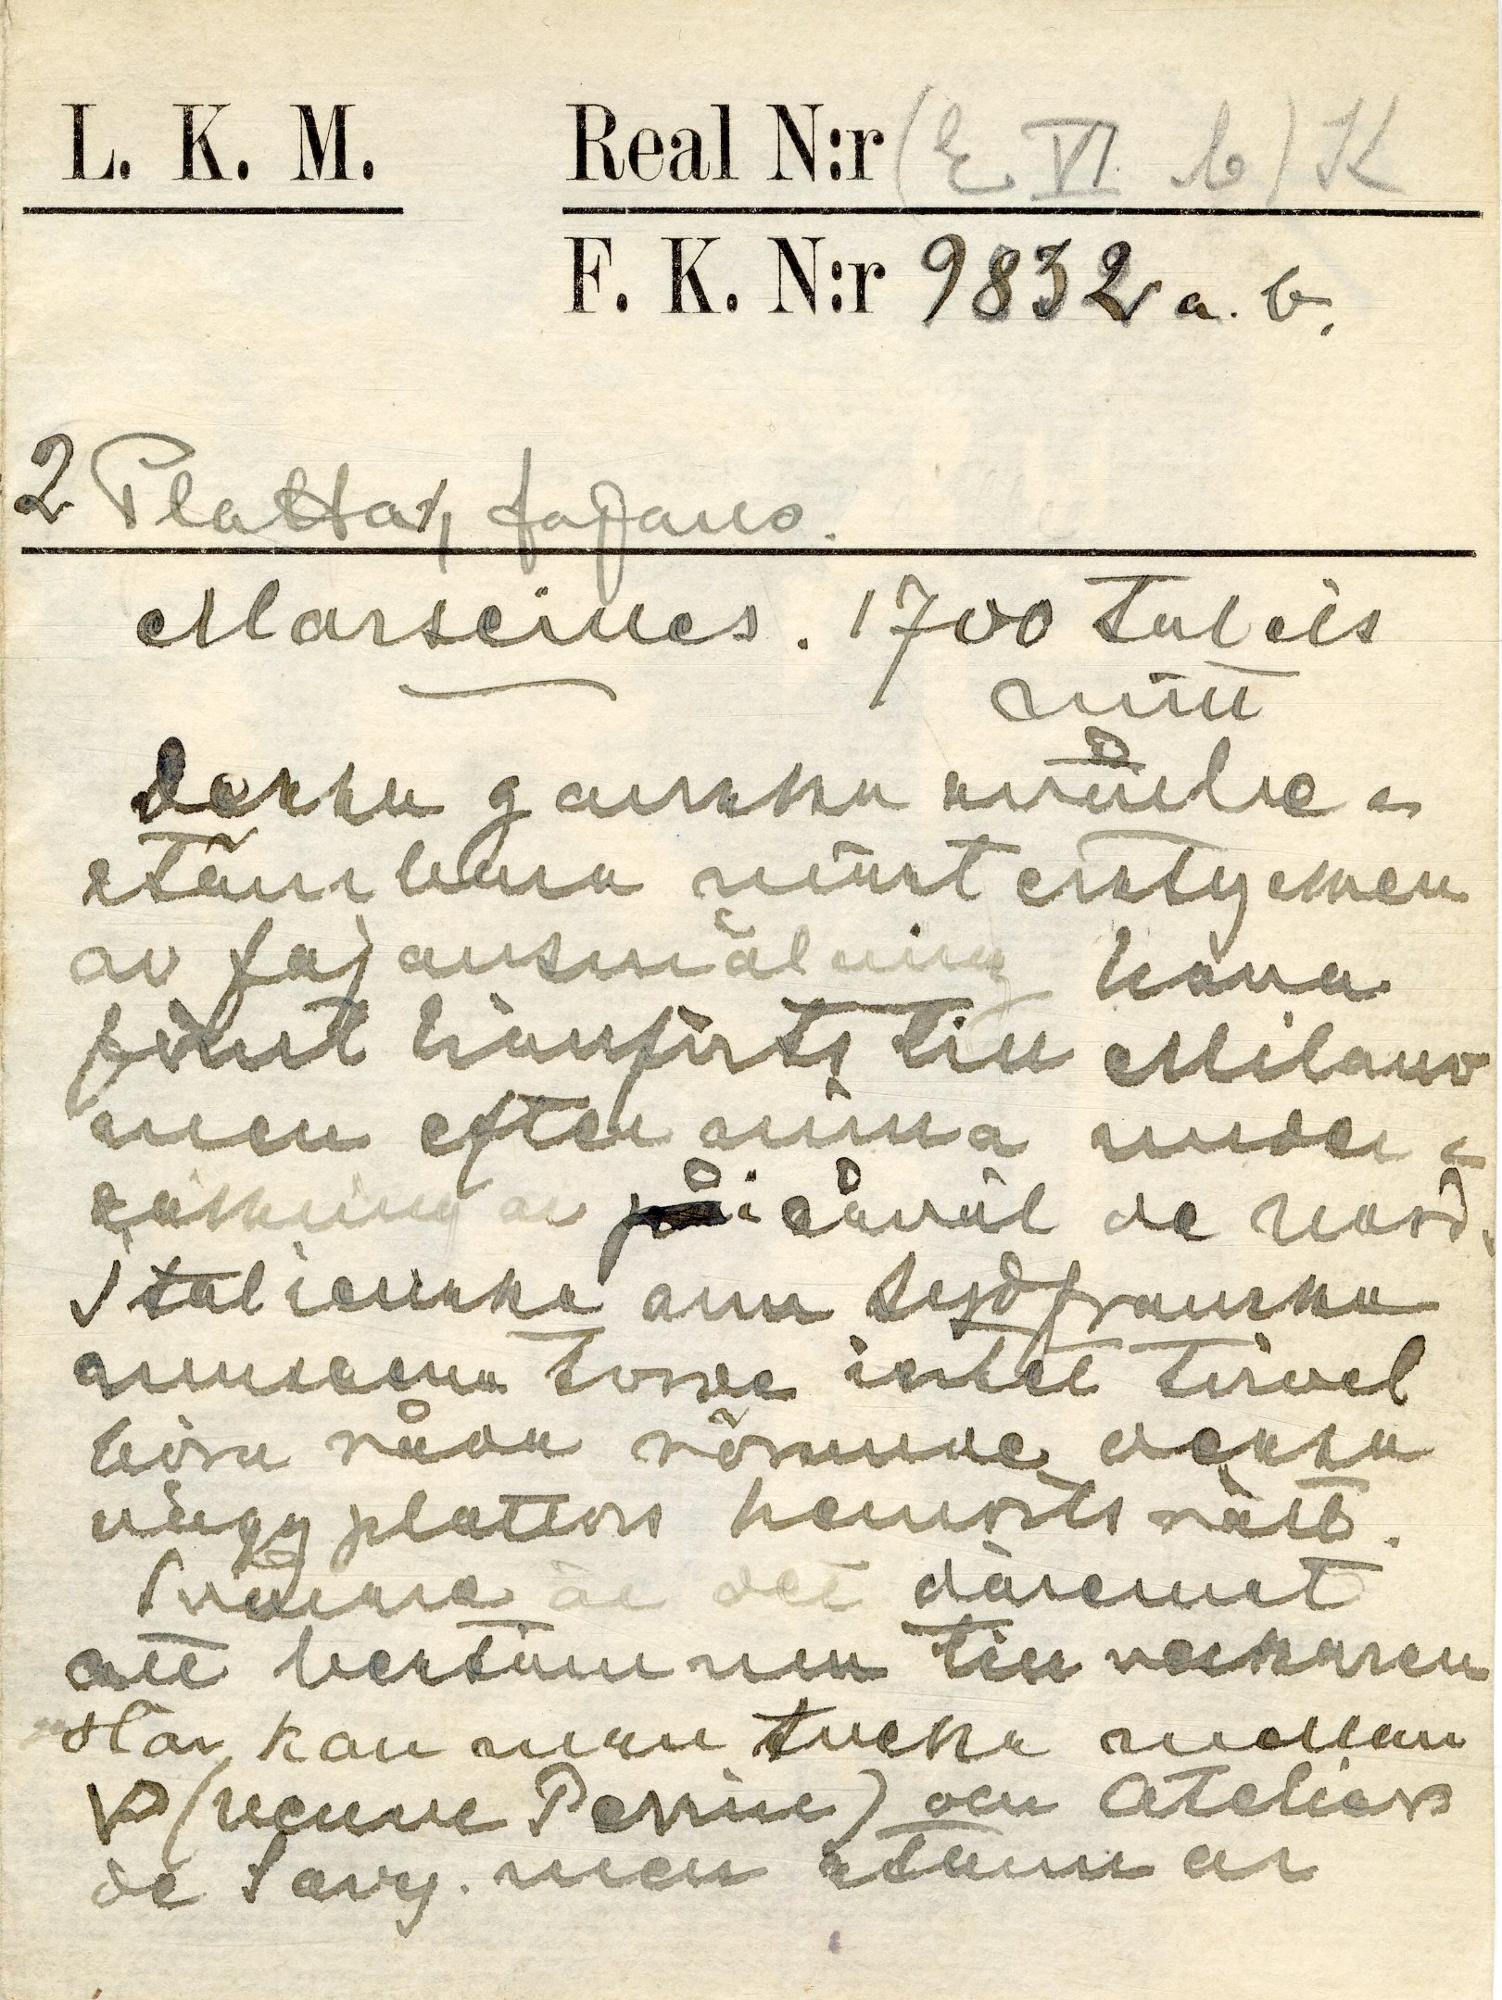 L. K. M. Real N:r (E. VI. b) K
F. K. N:r 9832 a. b.
2 Plattar, fajans.
Marseilles. 1700 talets
mitt
Dessa ganska
mästerstycken
av fajansmålning hava
förut hänförts till Milano
men efter mina under=
sökningar i såväl de nord.
italienska som sydfranska
museerna torde intet tvivel
böra råda rörande dessa
vägg plattors hemortsrätt.
Svårare är det däremot
att bestämma till verkaren
Här kan man tveka mellan
VP (veuve Perrin) och Ateliers
de Savy. men stannar